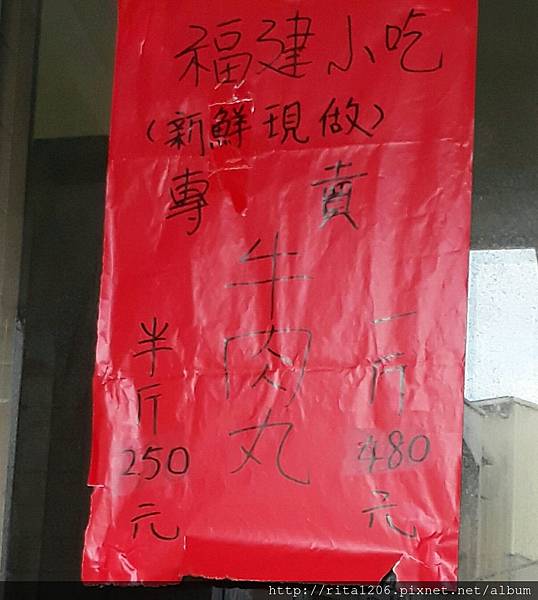 福建小吃
(新鮮現做)
專賣
牛肉丸
一斤480元
半斤250元
http://rita1206.pixnet.net/album